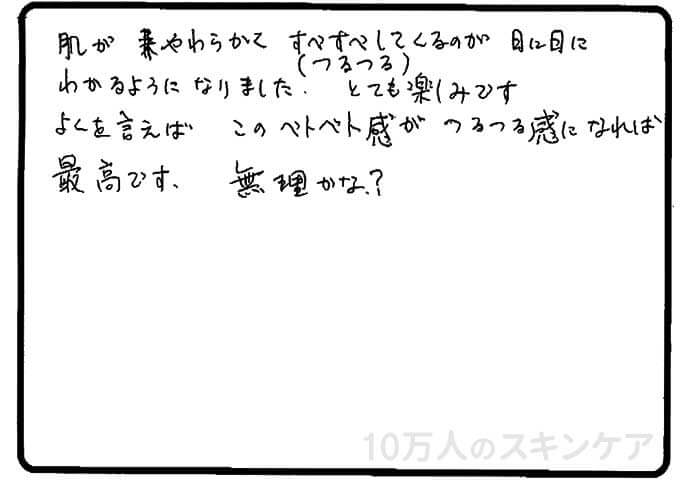 肌が 柔やわらかて すべすべしてくるのが 日に日に
(つるつる)
わかるようになりました. とても楽しみです
よくを言えば このベトベト感が つるつる感になれば
最高です、 無理かな?
10万人のスキンケア